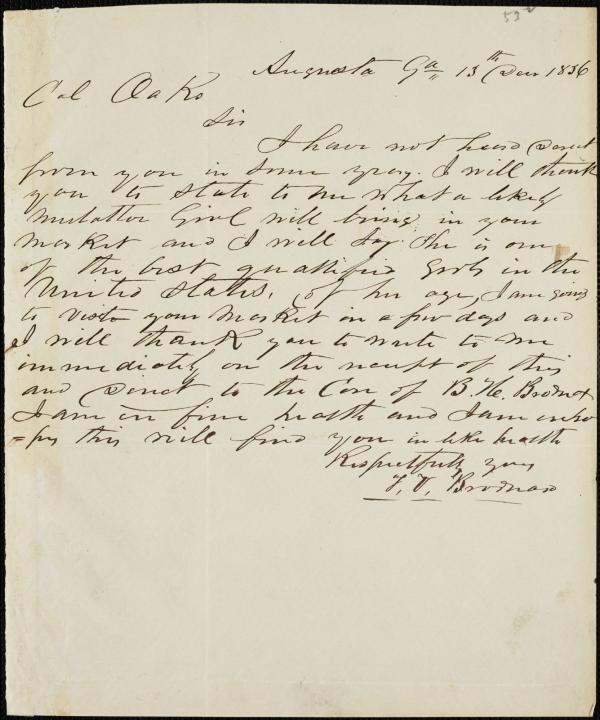 53
Augusta Ga 13th Dec 1856
Col Oaks
Sir
I have not heard direct
from you in some years. I will thank
you to state to me what a likely
mulattoe Girl will bring in your
market and I will say She is one
of the best qualified girls in the
United States, of her age, I am going
to visit your market in a few days and
I will thank you to write to me
immediately on the receipt of this
and direct to the Care of B. H. Brodnax
I am in fine health and I am in ho
=pes this will find you in like health
Respectfully yours
Brodnax